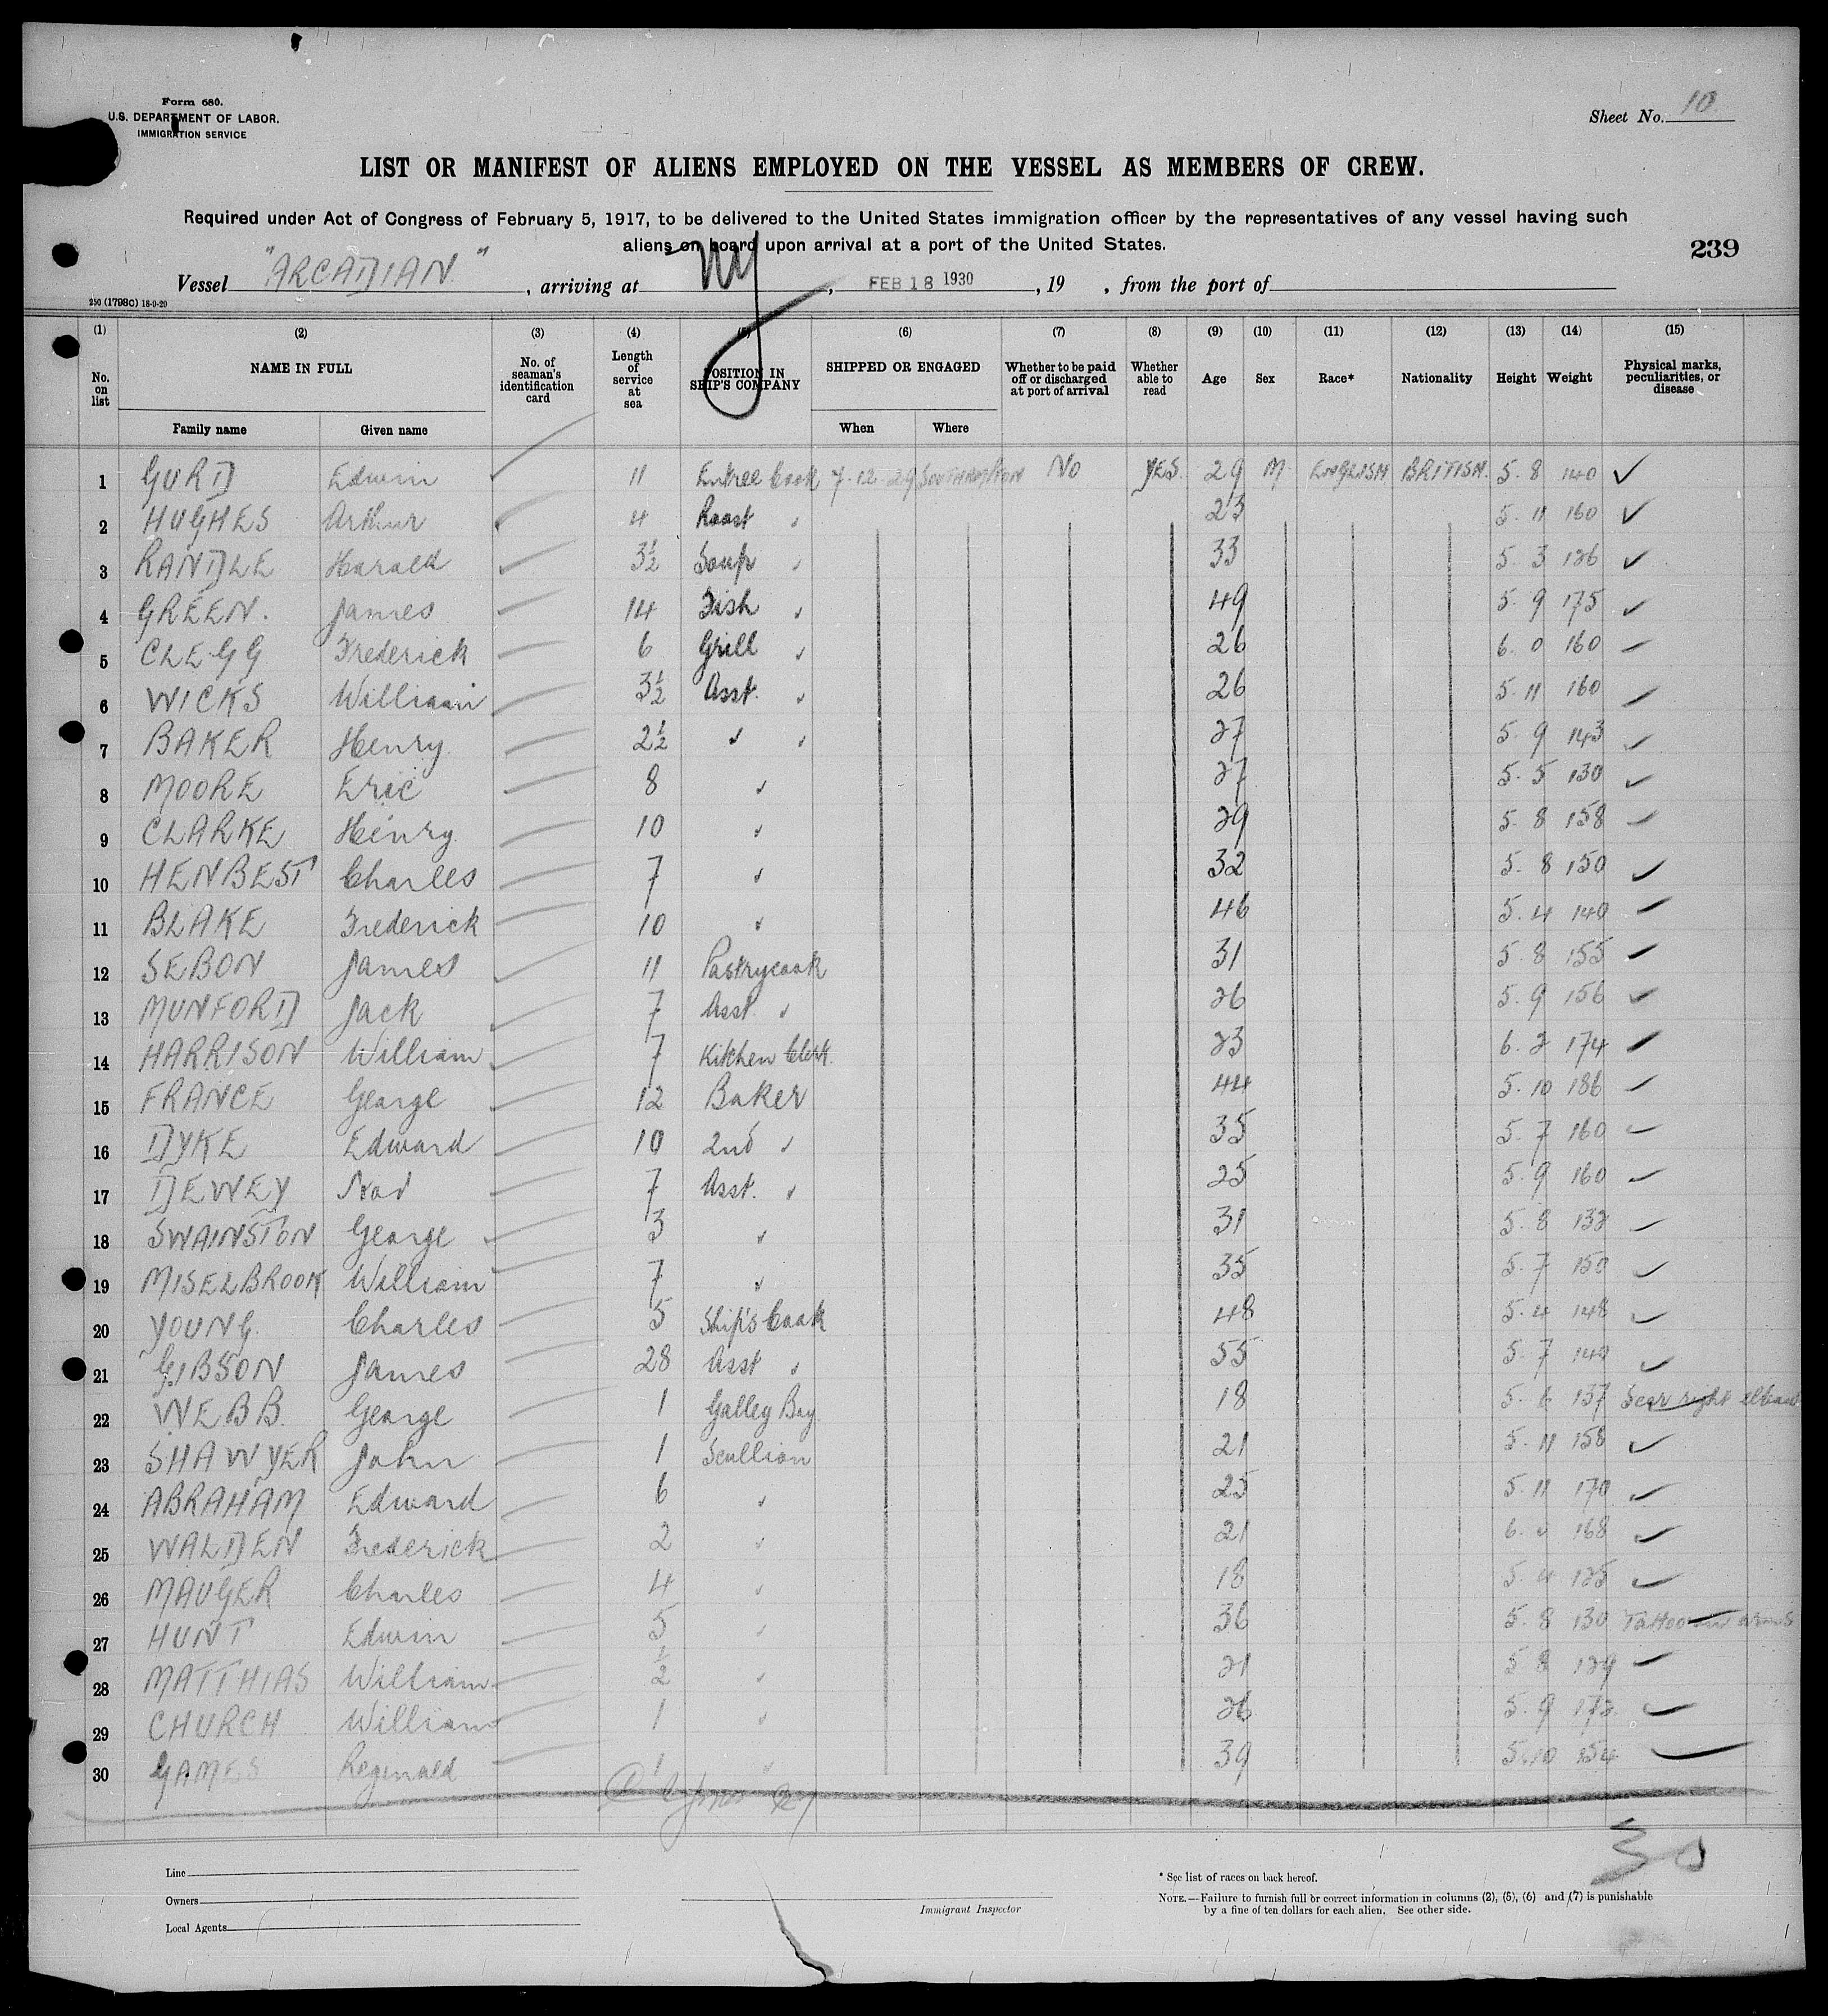 Form 680.
U.S. DEPARTMENT OF LABOR.
IMMIGRATION SERVICE
Sheet No. 10
LIST OR MANIFEST OF ALIENS EMPLOYED ON THE VESSEL AS MEMBERS OF CREW.
Required under Act of Congress of February 5, 1917, to be delivered to the United States immigration officer by the representatives of any vessel having such
aliens on board upon arrival at a port of the United States.
239
Vessel "ARCADIAN", arriving at NY, FEB 18 1930, 19 , from the port of
250 (1798C) 18-9-29
(1) (2) (3) (4) (5) (6) (7) (8) (9) (10) (11) (12) (13) (14) (15)
No. on list NAME IN FULL No. of seaman's identification card Length of service at sea POSITION IN SHIP'S COMPANY SHIPPED OR ENGAGED Whether to be paid off or discharged at port of arrival Whether able to read Age Sex Race* Nationality Height Weight Physical marks, peculiarities, or disease
Family name Given name When Where
1 GURD Edwin 11 Entree Cook 7-12-29 SOUTHAMPTON No YES. 29 M ENGLISH BRITISH. 5. 8 140 ✓
2 HUGHES Arthur 4 Roast " 23 5. 11 160 ✓
3 RANDLE Harold 3½ Soup " 33 5. 3 126 ✓
4 GREEN. James 14 Fish " 49 5. 9 175 ✓
5 CLEGG Frederick 6 Grill " 26 6. 0 160
6 WICKS William 3½ Asst. " 26 5. 11 160
7 BAKER Henry. 2½ " " 27 5. 9 143 ✓
8 MOORE Eric 8 " 27 5. 5 130 ✓
9 CLARKE Henry 10 " 29 5. 8 158
10 HENBEST Charles 7 " 32 5. 8 150 ✓
11 BLAKE Frederick 10 " 46 5. 4 140
12 SEBON James 11 Pastrycook 31 5. 8 155
13 MUNFORD Jack 7 Asst. " 26 5. 9 156 ✓
14 HARRISON William 7 Kitchen Clerk. 23 6. 2 174
15 FRANCE George 12 Baker 44 5. 10 186
16 DYKE Edward 10 2nd " 35 5. 7 160
17 DEWEY 7 Asst. " 25 5. 9 160
18 SWAINSTON George 3 " 31 5. 8 132
19 MISELBROOK William 7 " 35 5. 7 150 ✓
20 YOUNG. Charles 5 Ship's Cook 48 5. 4 148 ✓
21 GIBSON James 28 Asst " 55 5. 7 140 ✓
22 WEBB. George 1 Galley Boy 18 5. 6 137 Scar right elbow
23 SHAWYER John 1 Scullion 21 5. 11 158 ✓
24 ABRAHAM Edward 6 " 25 5. 11 170 ✓
25 WALDEN Frederick 2 " 21 6. 0 168 ✓
26 MAUGER Charles 4 " 18 5. 4 125 ✓
27 HUNT Edwin 5 " 36 5. 8 130 Tattoo on arms
28 MATTHIAS William ½ " 21 5. 8 129
29 CHURCH William 1 " 26 5. 9 172. ✓
30 GAMES Reginald 1 " 39 5. 10 154
30
Line
Owners
Local Agents
Immigrant Inspector
* See list of races on back hereof.
NOTE.—Failure to furnish full or correct information in columns (2), (5), (6) and (7) is punishable
by a fine of ten dollars for each alien. See other side.